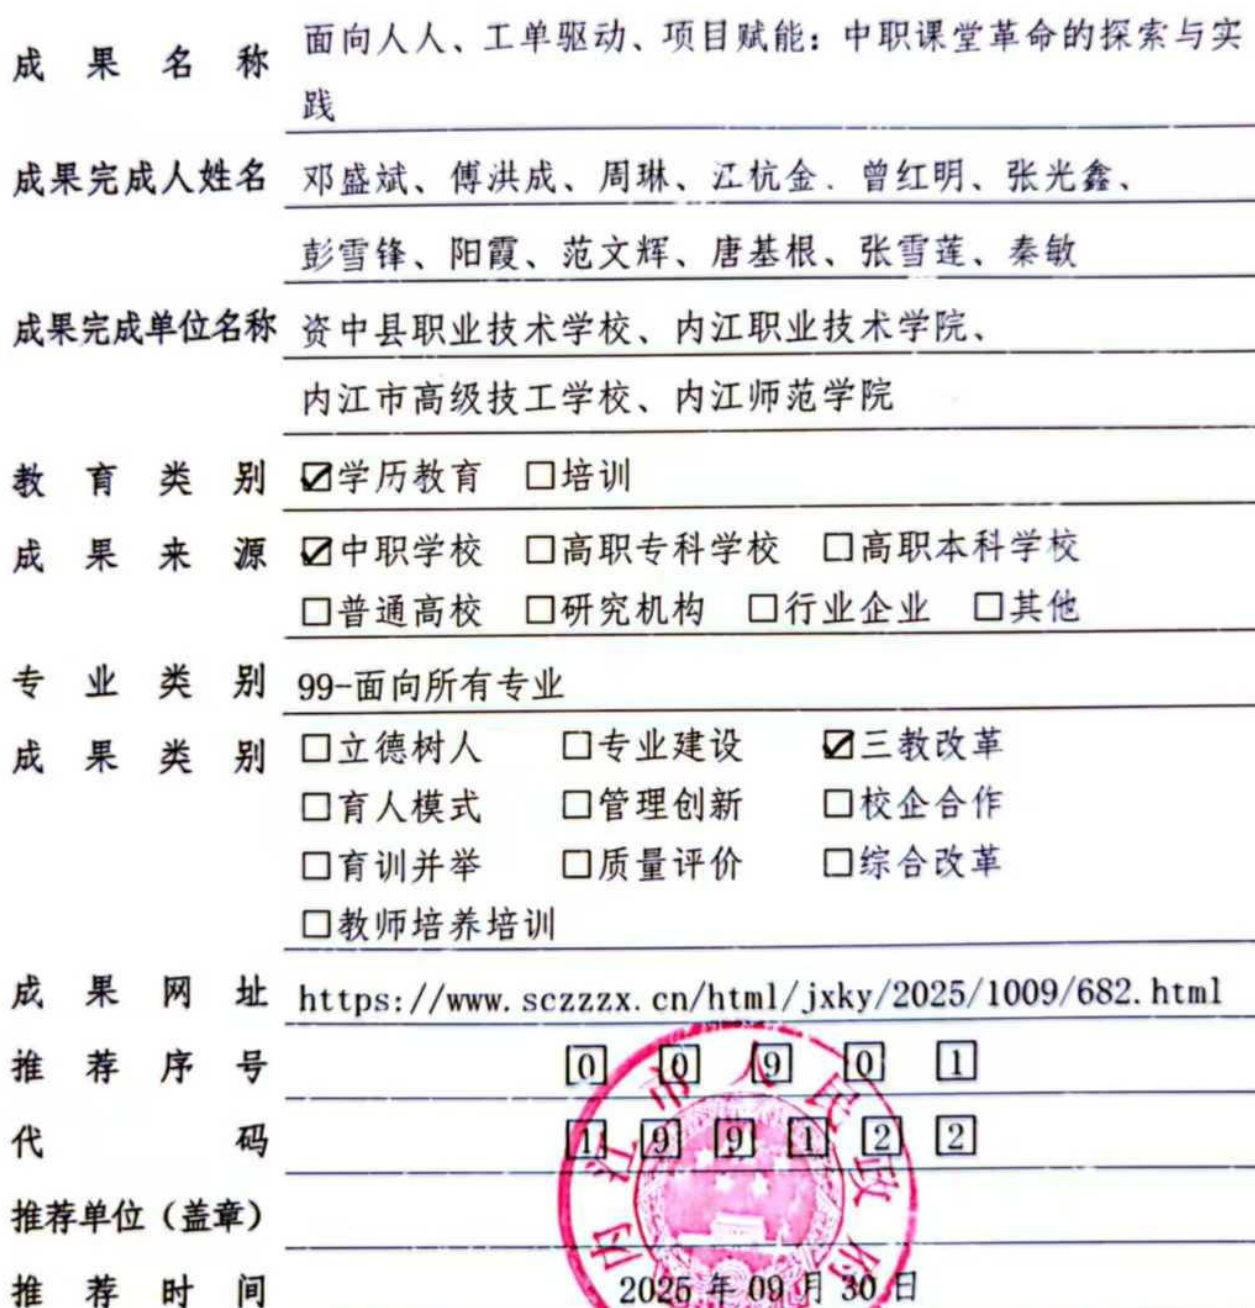 成果名称 面向人人、工单驱动、项目赋能：中职课堂革命的探索与实
践
成果完成人姓名 邓盛斌、傅洪成、周琳、江杭金．曾红明、张光鑫、
彭雪锋、阳霞、范文辉、唐基根、张雪莲、秦敏
成果完成单位名称 资中县职业技术学校、内江职业技术学院、
内江市高级技工学校、内江师范学院
教育类别 ☑学历教育 □培训
成果来源 ☑中职学校 □高职专科学校 □高职本科学校
□普通高校 □研究机构 □行业企业 □其他
专业类别 99-面向所有专业
成果类别 □立德树人 □专业建设 ☑三教改革
□育人模式 □管理创新 □校企合作
□育训并举 □质量评价 □综合改革
□教师培养培训
成果网址 https://www.sczzzx.cn/html/jxky/2025/1009/682.html
推荐序号 0 0 9 0 1
代码 1 9 9 1 2 2
推荐单位（盖章）
内江市人民政府
推荐时间 2025年09月30日